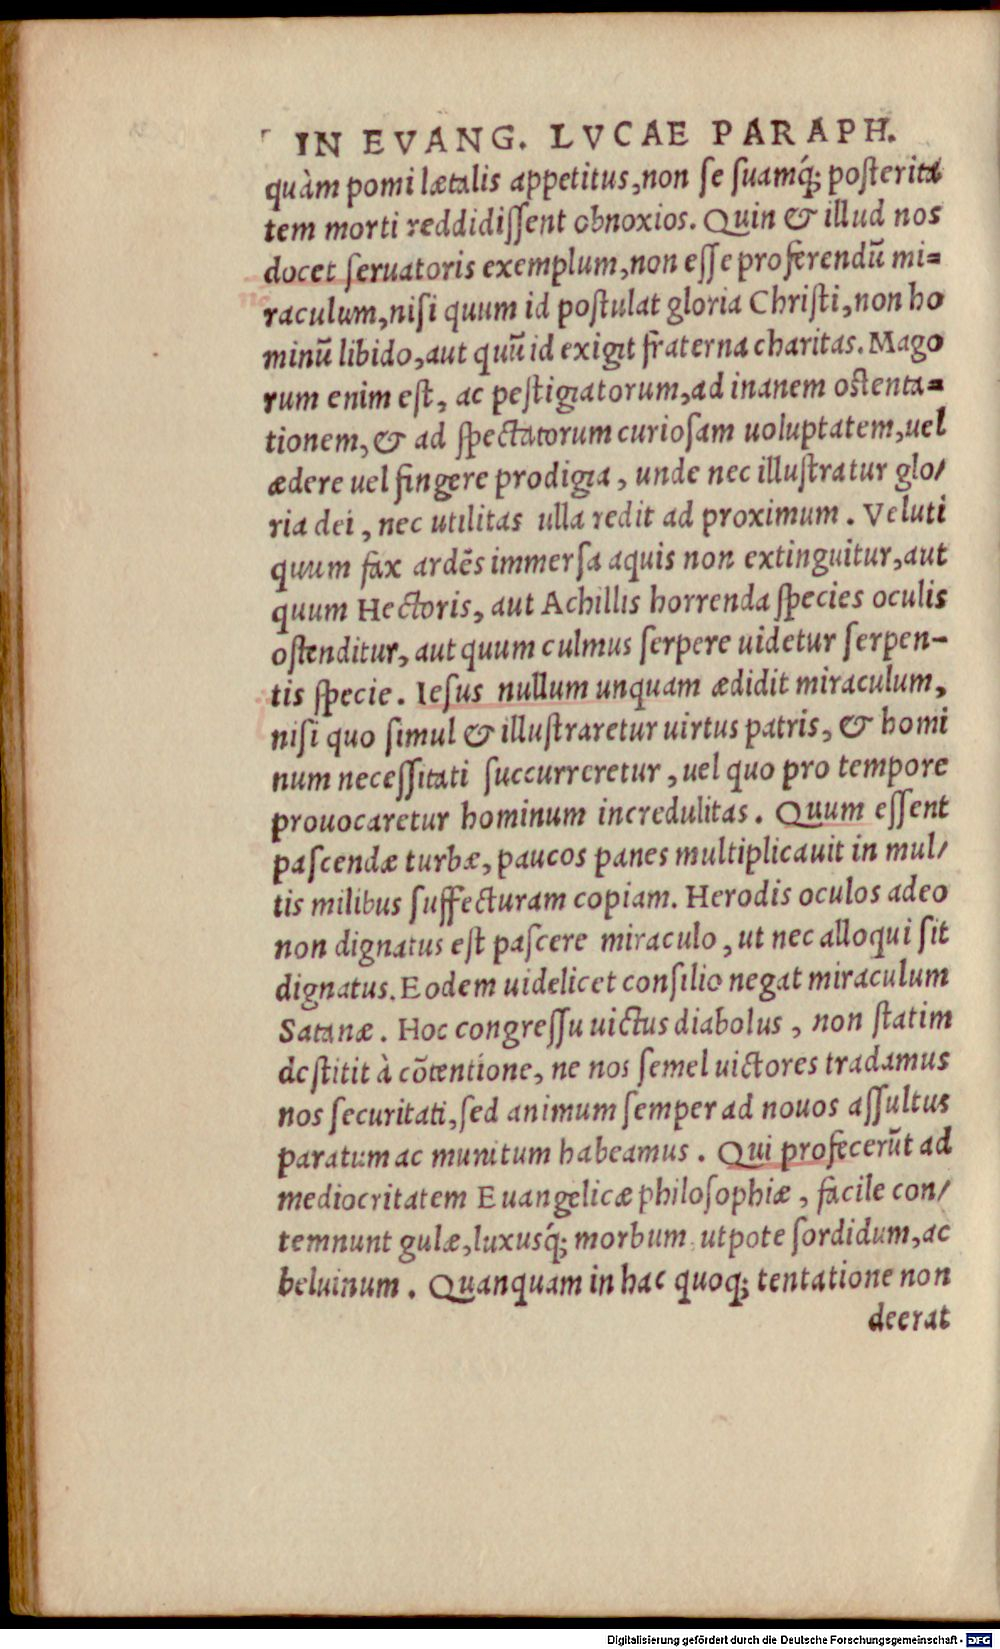 IN EVANG. LVCAE PARAPH.
quàm pomi lætalis appetitus, non se suamq́; posterita
tem morti reddidissent obnoxios. Quin & illud nos
docet seruatoris exemplum, non esse proferendū mi=
raculum, nisi quum id postulat gloria Christi, non ho
minū libido, aut quū id exigit fraterna charitas. Mago
rum enim est, ac pestigiatorum, ad inanem ostenta=
tionem, & ad spectatorum curiosam uoluptatem, uel
ædere uel fingere prodigia, unde nec illustratur glo/
ria dei, nec utilitas ulla redit ad proximum. Veluti
quum fax ardēs immersa aquis non extinguitur, aut
quum Hectoris, aut Achillis horrenda species oculis
ostenditur, aut quum culmus serpere uidetur serpen-
tis specie. Iesus nullum unquam ædidit miraculum,
nisi quo simul & illustraretur uirtus patris, & homi
num necessitati succurreretur, uel quo pro tempore
prouocaretur hominum incredulitas. Quum essent
pascendæ turbæ, paucos panes multiplicauit in mul/
tis milibus suffecturam copiam. Herodis oculos adeo
non dignatus est pascere miraculo, ut nec alloqui sit
dignatus. Eodem uidelicet consilio negat miraculum
Satanæ. Hoc congressu uictus diabolus, non statim
destitit à cōtentione, ne nos semel uictores tradamus
nos securitati, sed animum semper ad nouos assultus
paratum ac munitum habeamus. Qui profecerūt ad
mediocritatem Euangelicæ philosophiæ, facile con/
temnunt gulæ, luxusq́; morbum utpote sordidum, ac
beluinum. Quanquam in hac quoq; tentatione non
deerat
Digitalisierung gefördert durch die Deutsche Forschungsgemeinschaft - DFG